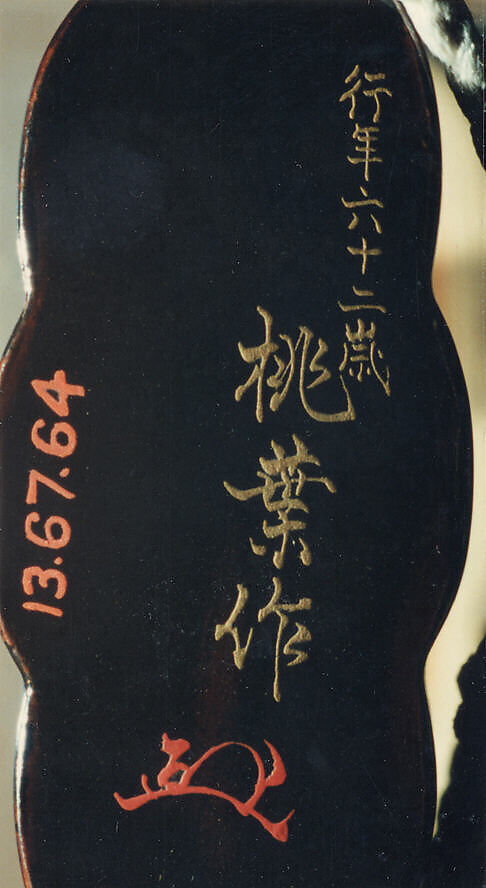 行年六十二歳
桃葉作
13.67.64